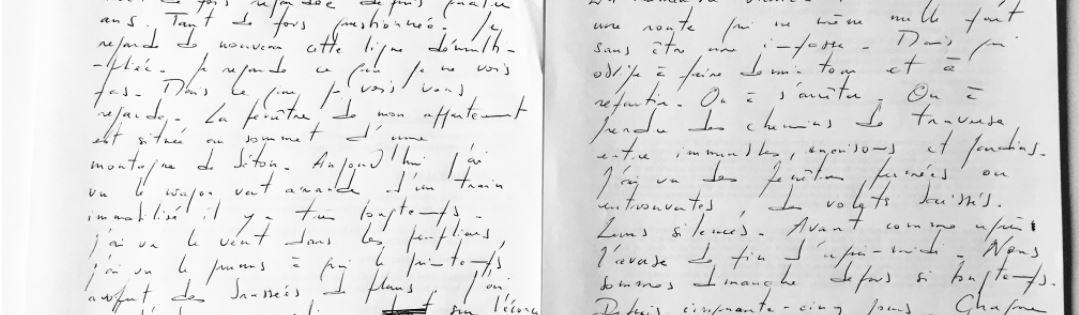 ans. Tant de fois questionnée. Je
regarde de nouveau cette ligne démulti-
-pliée. Je regarde ce que je ne vois
pas. Mais ce que je vois vous
regarde. La fenêtre de mon appartement
est située au sommet d'une
montagne de béton. Aujourd'hui j'ai
vu le wagon vert amande d'un train
immobilisé il y a très longtemps.
j'ai vu le vent dans les peupliers,
j'ai vu le prunus à qui le printemps
avait offert des brassées de fleurs, j'ai
sur l'écorce
une route qui ne mène nulle part
sans être une impasse. Mais qui
oblige à faire demi-tour et à
repartir. Ou à s'arrêter. Ou à
prendre des chemins de traverse
entre immeubles, maisons et jardins.
J'ai vu des fenêtres fermées ou
entrouvertes, des volets baissés.
Leurs silences. Avant comme après
l'averse de fin d'après-midi. Nous
sommes dimanche depuis si longtemps.
Depuis cinquante-cinq jours. Chaque